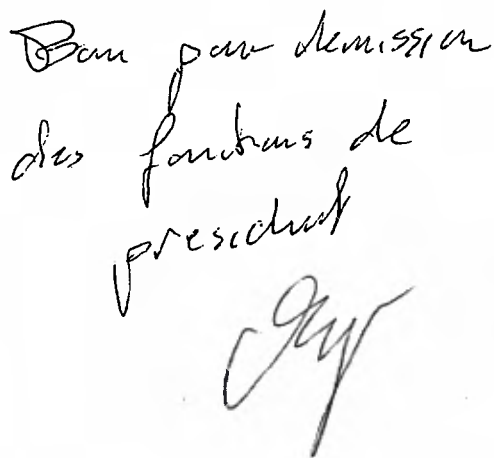 Bon pour demission
des fonctions de
president